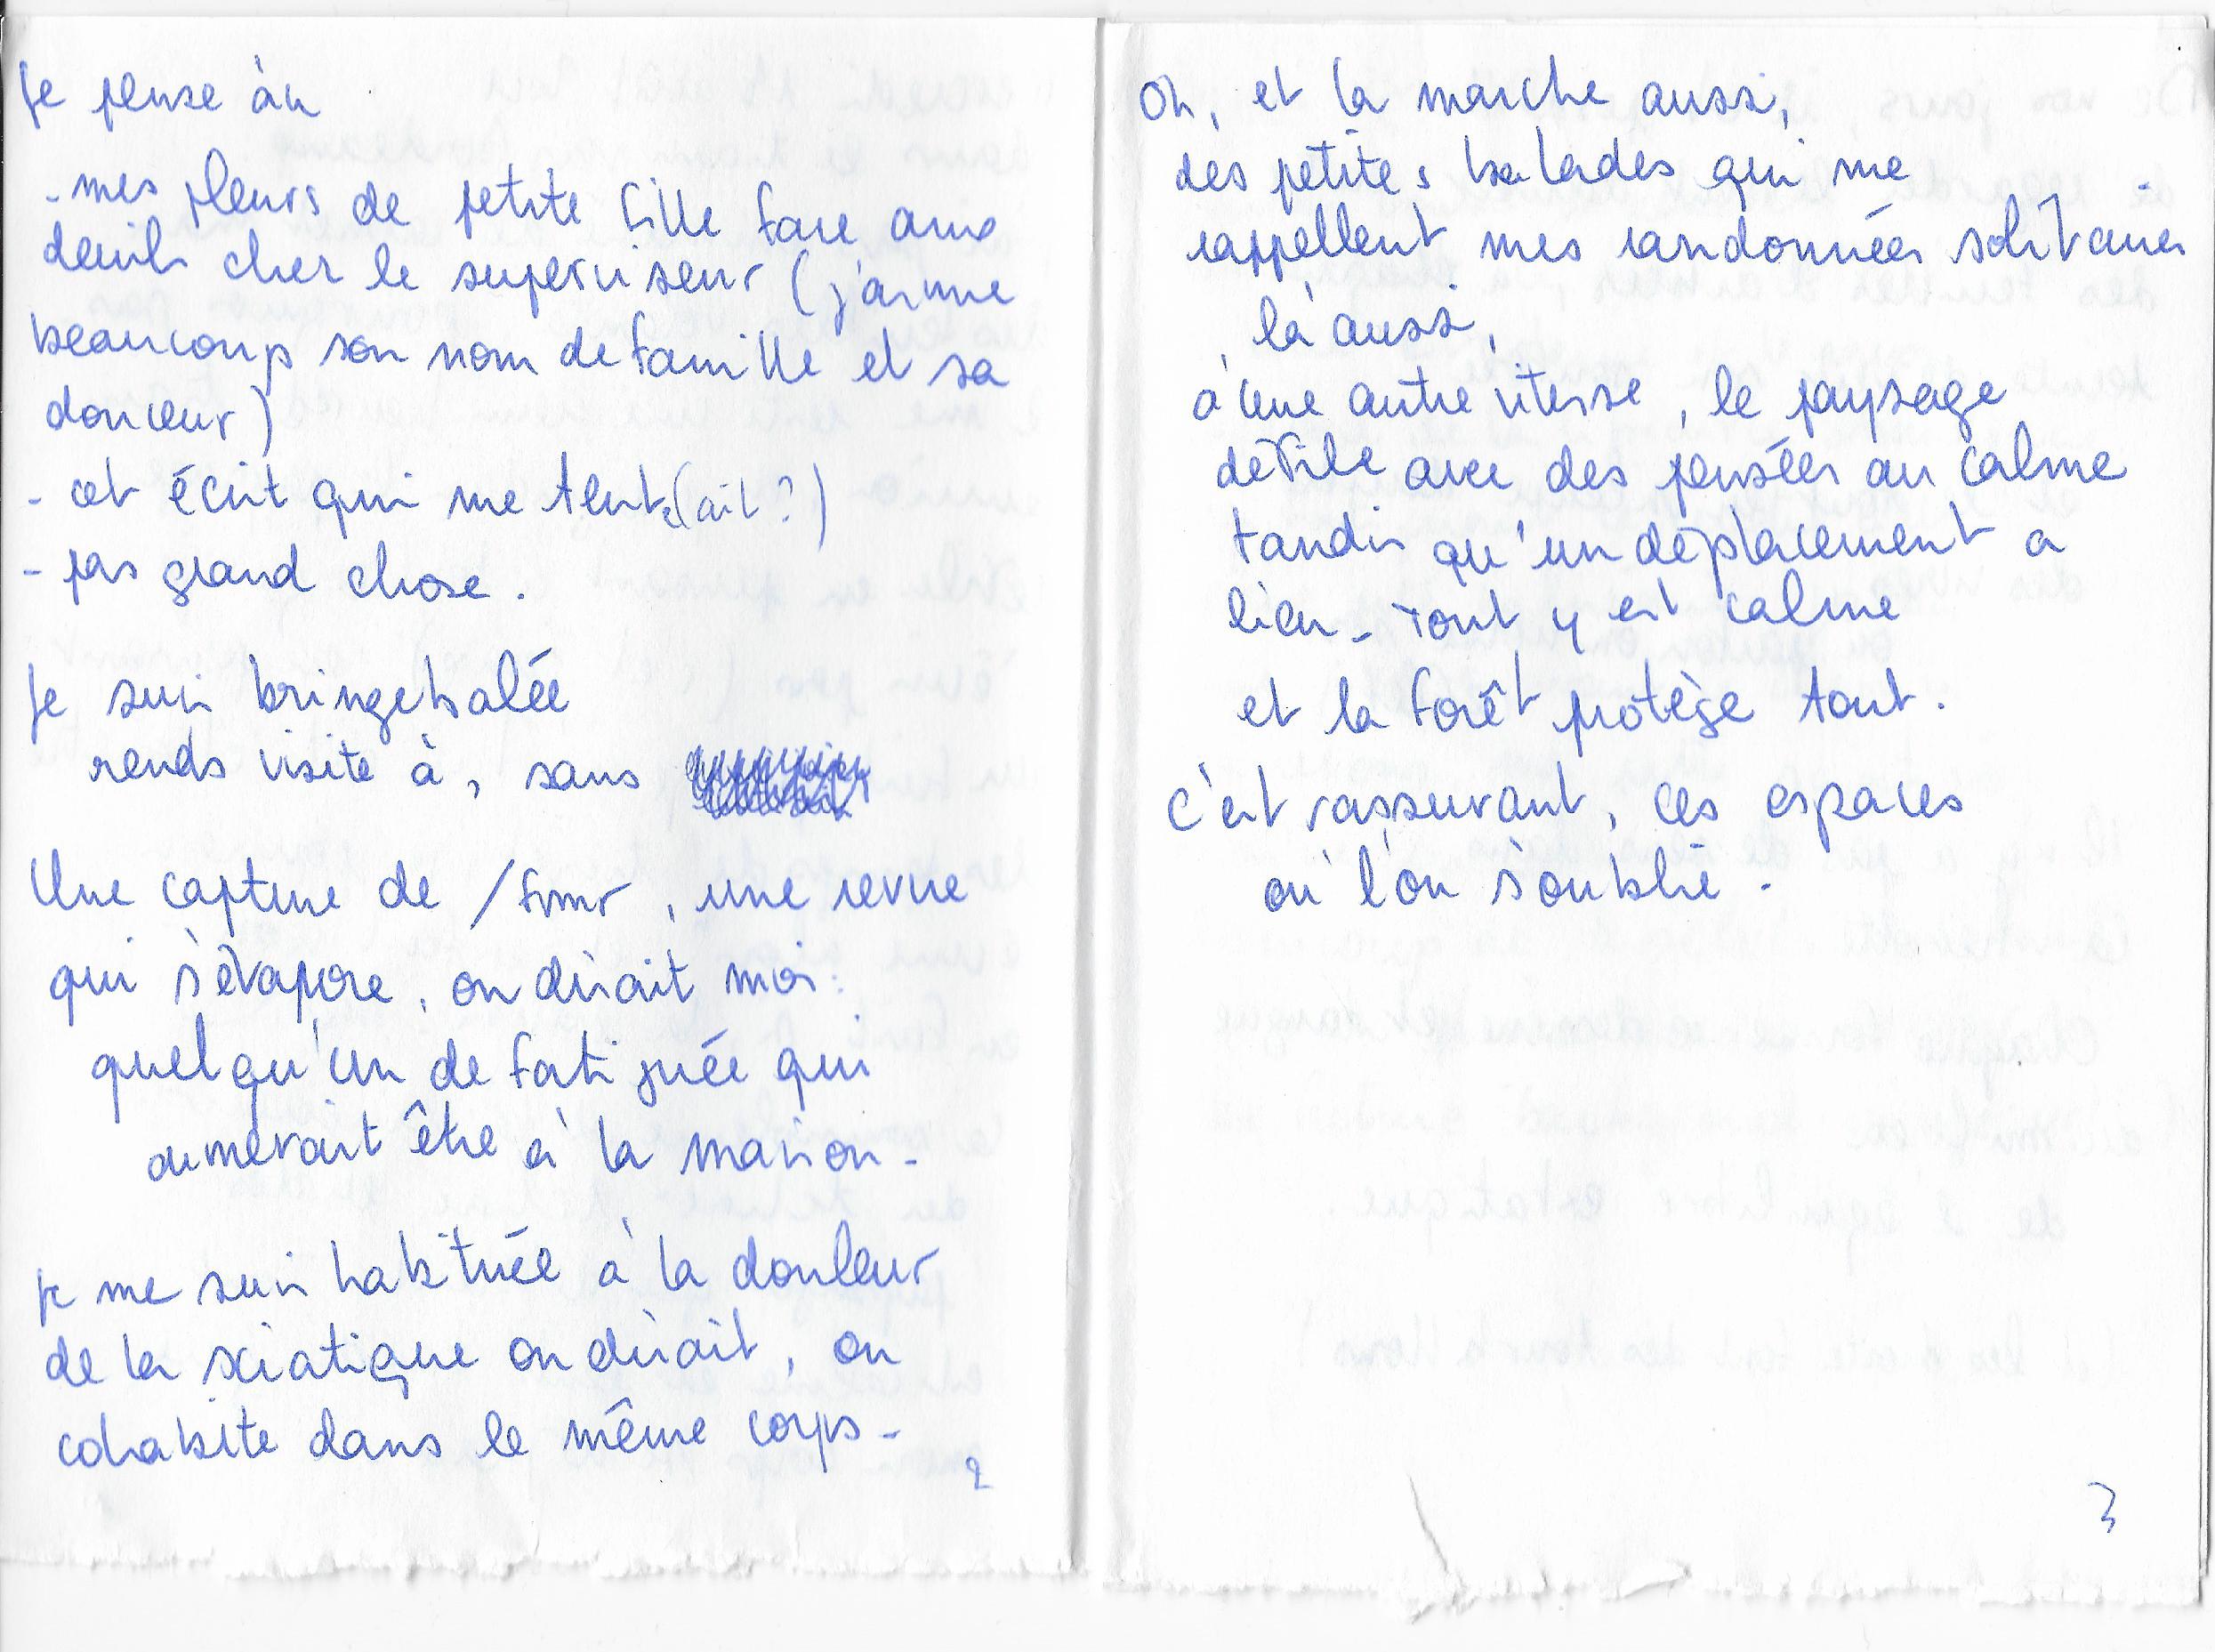 Je pense à
- mes pleurs de petite fille face aux
deuils chez le superviseur (j'aime
beaucoup son nom de famille et sa
douceur)
- cet écrit qui me tente(ait?)
- pas grand chose.
Je suis bringebalée
rends visite à, sans
Une capture de / , une revue
qui s'évapore, on dirait moi :
quelqu'un de fatiguée qui
aimerait être à la maison -
Je me suis habituée à la douleur
de la sciatique on dirait, on
cohabite dans le même corps -
2
Oh, et la marche aussi,
des petites balades qui me
rappellent mes randonnées solitaires
, là aussi,
à une autre vitesse, le paysage
défile avec des pensées au calme
tandis qu'un déplacement a
lieu - Tout y est calme
et la forêt protège tout.
C'est rassurant, ces espaces
où l'on s'oublie -
3